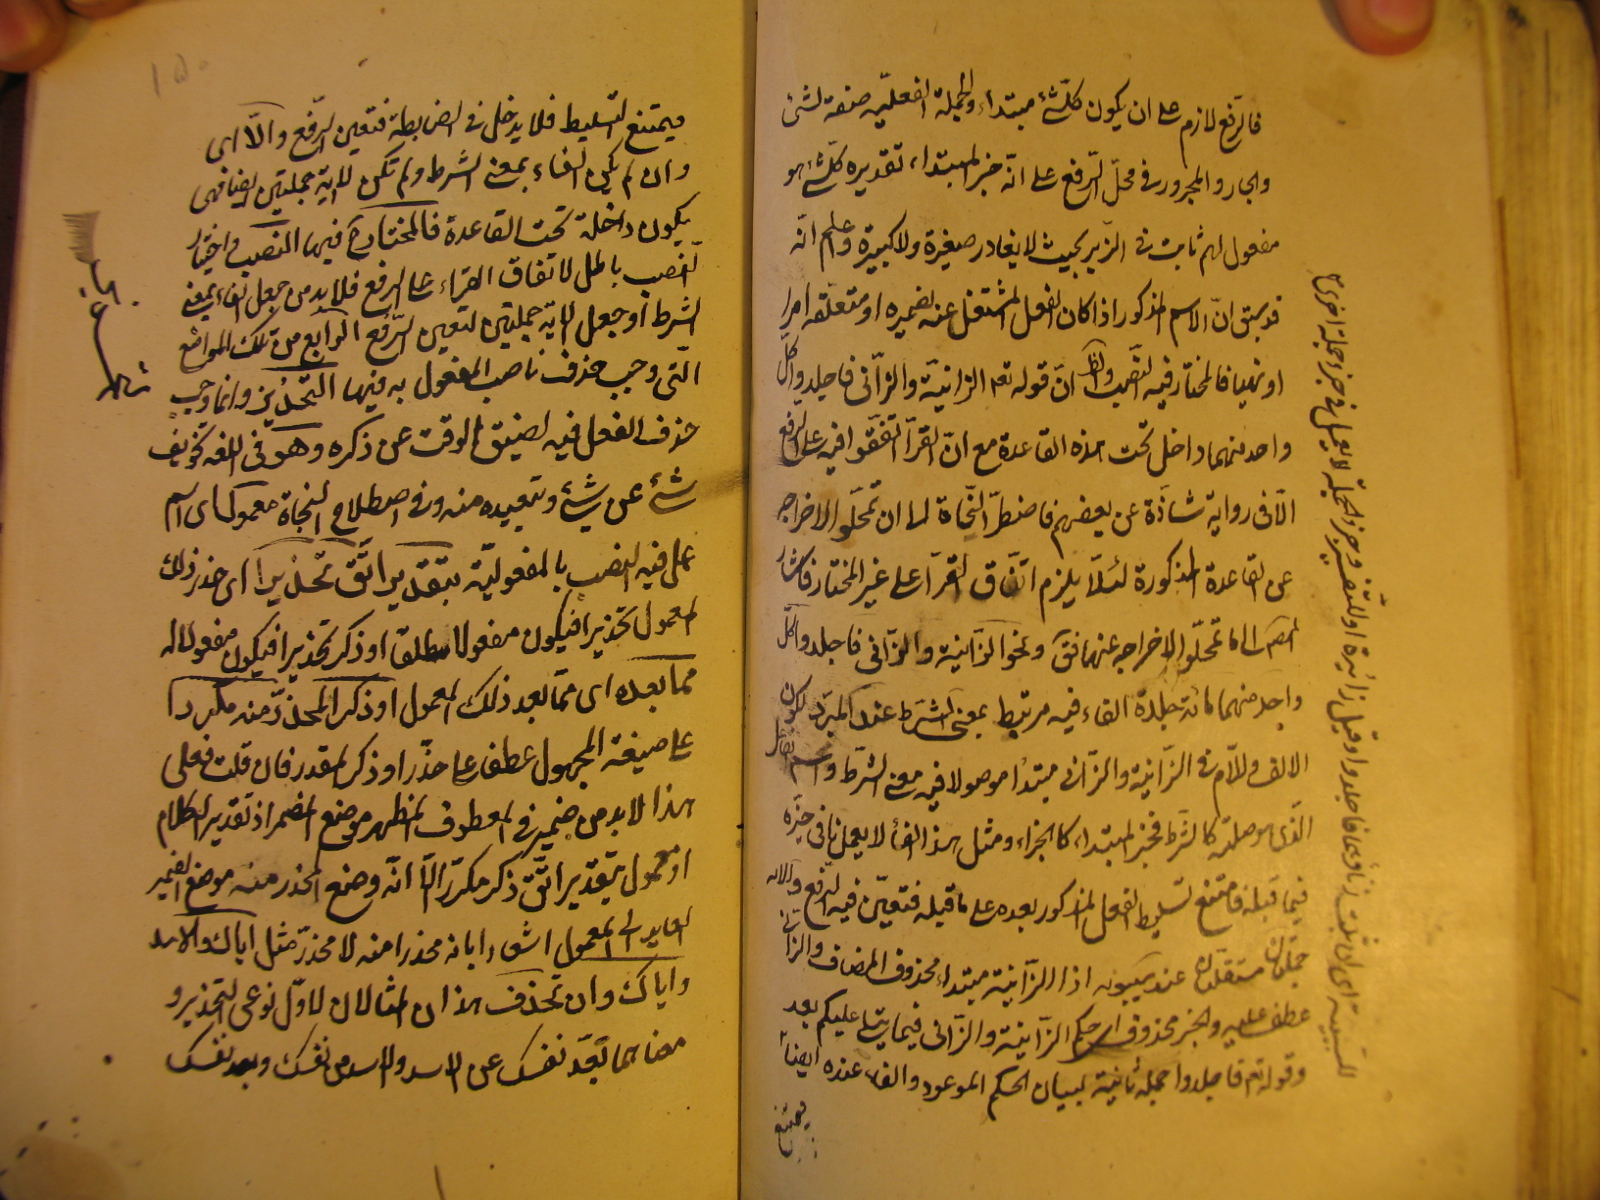 فالرفع لازم على ان يكون كل شئ مبتداء والجملة الفعلية صفة لشئ
والجار والمجرور في محل الرفع على انه خبر المبتداء تقديره كل شئ هو
مفعول لهم ثابت في الزبر بحيث لا يغادر صغيرة ولا كبيرة واعلم انه
قد سبق ان الاسم المذكور اذا كان الفعل المشتغل عنه بضميره او متعلقه امرا
او نهيا فالمختار فيه النصب والظ ان قوله تعه الزانية والزانى فاجلدوا كل
واحد منهما داخل تحت هذه القاعدة مع ان القرآ اتفقوا فيه على الرفع
الا فى رواية شاذة عن بعضهم فاضطر النحاة الى ان تمحلوا لاخراجه
عن القاعدة المذكورة لئلا يلزم اتفاق القرآ على غير المختار فاشار
المص الى ما تمحلوا لاخراجه عنها فقَ ونحو الزانية والزانى فاجلدوا كل
واحد منهما مائة جلدة الفاء فيه مرتبط بمعنى الشرط عند المبرد لكون
الالف واللام فى الزانية والزانى مبتدأ موصولا فيه معنى الشرط واسم الفاعل
الذى هو صلته كالشرط فخبر المبتداء كالجزاء ومثل هذا الفأ لا يعمل ما فى حيزه
فيما قبله فامتنع تسليط الفعل المذكور بعده على ما قبله فتعين فيه الرفع والاية
جملتان مستقلتان عند سيبويه اذا الزانية مبتداء محذوف المضاف والزانى
عطف عليه والخبر محذوف اى حكم الزانية والزانى فيما يتلى عليكم بعد
وقوله تع فاجلدوا جملة ثانية لبيان الحكم الموعود والفاء عنده ايضا
يمتنع
للسببية اى ان ثبت زناؤهما فاجلدوا وقيل زائدة او للتفسير وجزء الجملة لا يعمل فى جزء جملة اخرى
١٥٠
فيمتنع التسليط فلا يدخل فى الضابطة فتعين الرفع والا اى
وان لم يكن الفاء بمعنى الشرط ولم تكن الاية جملتين ايضا فهى
يكون داخلة تحت القاعدة فالمختار ح فيها النصب واختيار
النصب باطل لاتفاق القراء على الرفع فلا بد من جعل الفاء بمعنى
الشرط او جعل الاية جملتين لتعين الرفع الرابع من تلك المواضع
التى وجب حذف ناصب المفعول به فيها التحذير وانما وجب
حذف الفعل فيه لضيق الوقت عن ذكره وهو فى اللغه تخويف
شئ عن شئ وتبعيده منه وفى اصطلاح النحاة معمول اى اسم
عمل فيه النصب بالمفعولية بتقدير اتق تحذيرا اى حذر ذلك
المعمول تحذيرا فيكون مفعولا مطلقا او ذكر تحذيرا فيكون مفعولا له
مما بعده اى مما بعد ذلك المعمول او ذكر المحذر منه مكررا
على صيغة المجهول عطف على حذر او ذكر المقدر فان قلت فعلى
هذا لا بد من ضمير فى المعطوف المظهر موضع المضمر اذ تقدير الكلام
او معمول بتقدير اتق ذكر مكررا الا انه وضع المحذر منه موضع الضمير
العايد الى المعمول اشعارا بانه محذر منه لا محذر مثل اياك والاسد
واياك وان تحذف هذان المثالان لاول نوعى التحذير و
معناهما بعّد نفسك عن الاسد والاسد من نفسك وبعد نفسك